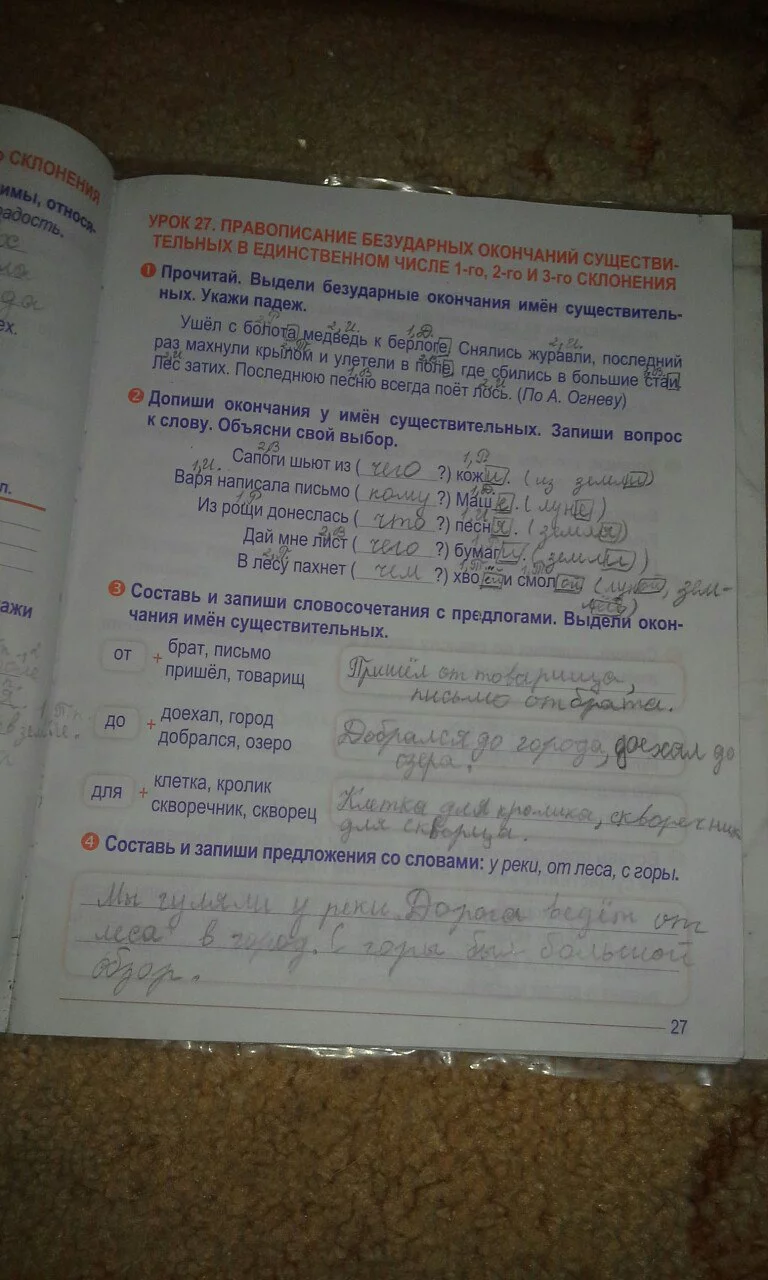 о СКЛОНЕНИЯ
имы, относя-
адость.
ех.
л.
ажи
УРОК 27. ПРАВОПИСАНИЕ БЕЗУДАРНЫХ ОКОНЧАНИЙ СУЩЕСТВИ-
ТЕЛЬНЫХ В ЕДИНСТВЕННОМ ЧИСЛЕ 1-го, 2-го И 3-го СКЛОНЕНИЯ
1 Прочитай. Выдели безударные окончания имён существитель-
ных. Укажи падеж.
2,Р. 2,И. 1,Д. 2,И.
Ушёл с болота медведь к берлоге. Снялись журавли, последний
2,Т. 2,В. 1,В.
раз махнули крылом и улетели в поле, где сбились в большие стаи.
2,И. 1,В. 2,И
Лес затих. Последнюю песню всегда поёт лось. (По А. Огневу)
2 Допиши окончания у имён существительных. Запиши вопрос
к слову. Объясни свой выбор.
2,В 1,Р
Сапоги шьют из ( чего ?) кожи. (из земли)
1,И. 1,Д.
Варя написала письмо ( кому ?) Маше. (луне)
1,Р 1,И
Из рощи донеслась ( что ?) песня. (земля)
2,В
Дай мне лист ( чего ?) бумаги. (земли)
2,П. 1,Т. 1,Т.
В лесу пахнет ( чем ?) хвоей и смолой (луной, зем-
лёй)
3 Составь и запиши словосочетания с предлогами. Выдели окон-
чания имён существительных.
от + брат, письмо
пришёл, товарищ
Пришёл от товарища,
письмо от брата.
до + доехал, город
добрался, озеро
Добрался до города, доехал до
озера.
для + клетка, кролик
скворечник, скворец
Клетка для кролика, скворечник
для скворца.
4 Составь и запиши предложения со словами: у реки, от леса, с горы.
Мы гуляли у реки. Дорога ведёт от
леса в город. С горы был большой
обзор.
27